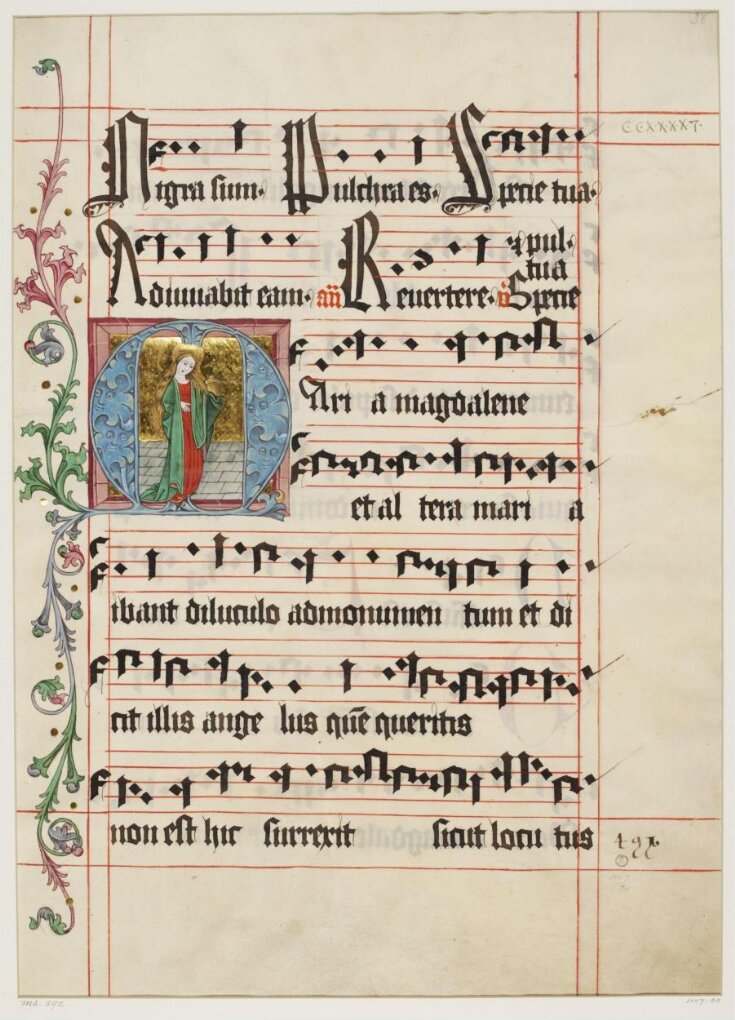 38
Nigra sum. Pulchra es. Specie tua.
CCXXXXT.
pul.
tua
Adiuuabit eam. añ Reuertere. v̄ Specie
Mari a magdalene
et al tera mari a
ibant diluculo admonumen tum et di
cit illis ange lus quē queritis
non est hic surrexit sicut locu tus
MS. 392